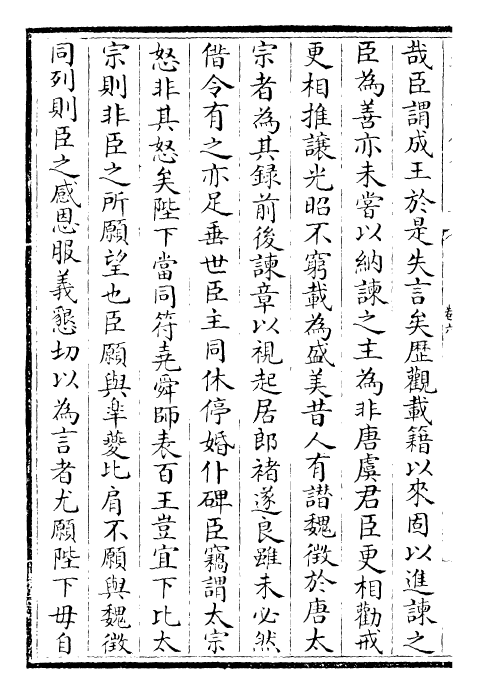 哉臣謂成王於是失言矣歴觀載籍以來固以進諫之
臣為善亦未嘗以納諫之主為非唐虞君臣更相勸戒
更相推讓光昭不窮載為盛美昔人有譛魏徴於唐太
宗者為其録前後諫章以視起居郎褚遂良雖未必然
借令有之亦足垂世臣主同休停婚仆碑臣竊謂太宗
怒非其怒矣陛下當同符堯舜師表百王豈宜下比太
宗則非臣之所願望也臣願與臯夔比肩不願與魏徴
同列則臣之感恩服義懇切以為言者尤願陛下毋自
卷六